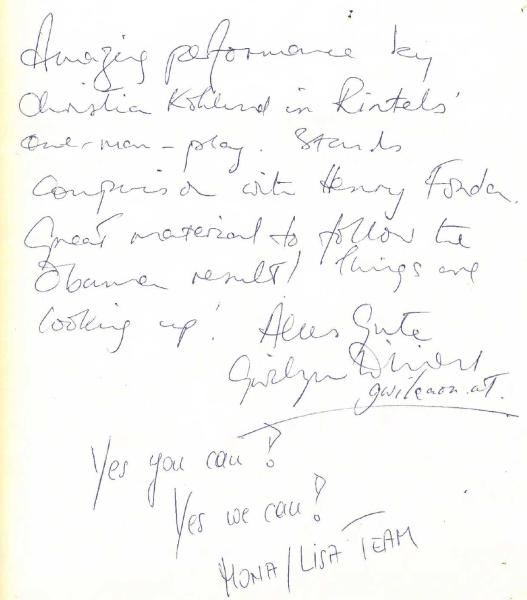 Amazing performance by
Christian Kohlund in Rintels'
one-man-play. Stands
comparison with Henry Fonda.
Great material to follow the
Obama result! Things are
looking up! Alles Gute
Yes you can!
Yes we can!
MONA/LISA TEAM